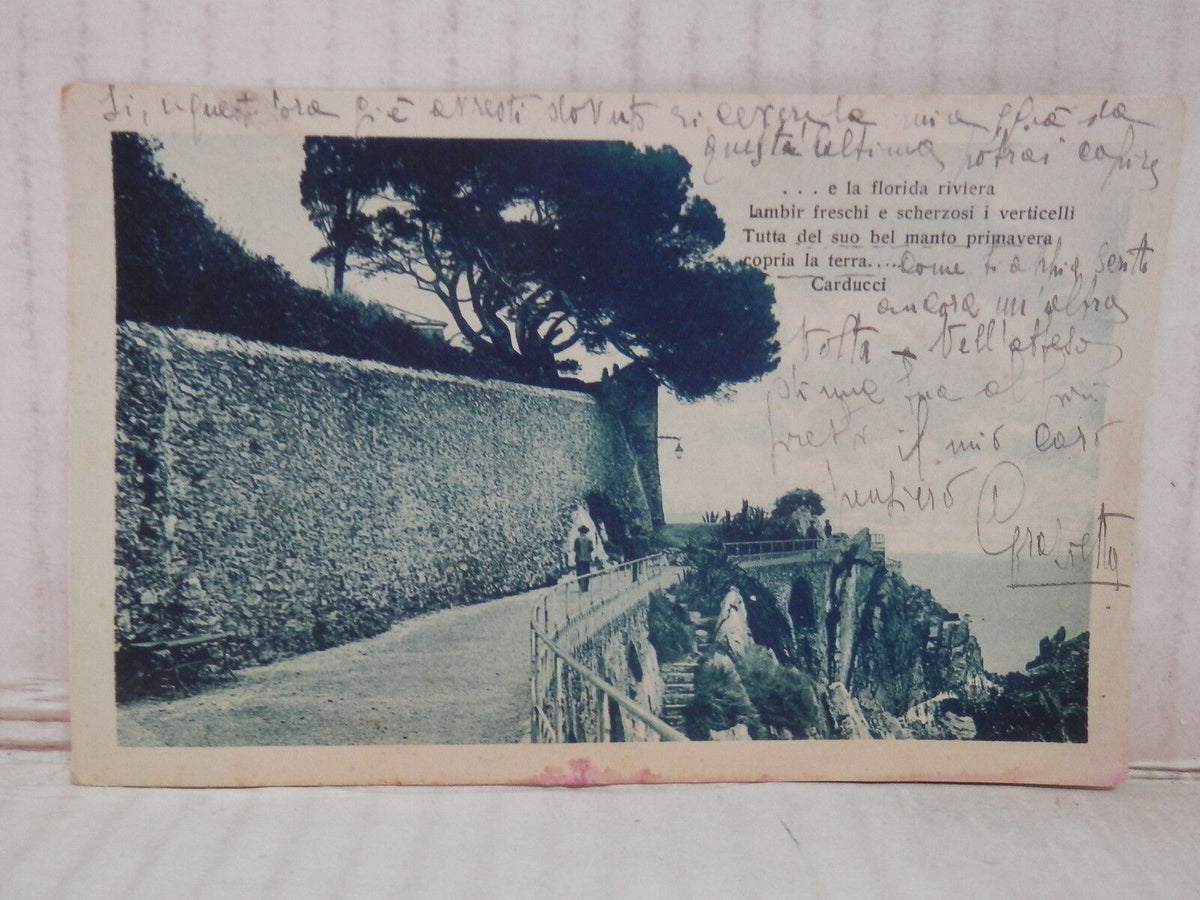 Si, a quest'ora già avresti dovuto ricevere la mia già da
questa ultima potrai capire
. . . e la florida riviera
lambir freschi e scherzosi i verticelli
Tutta del suo bel manto primavera
copria la terra. . . .
Carducci
Come ti ho mia
ancora un'altra
Volta - Nell'attesa
di una tua al più
presto il mio caro
pensiero